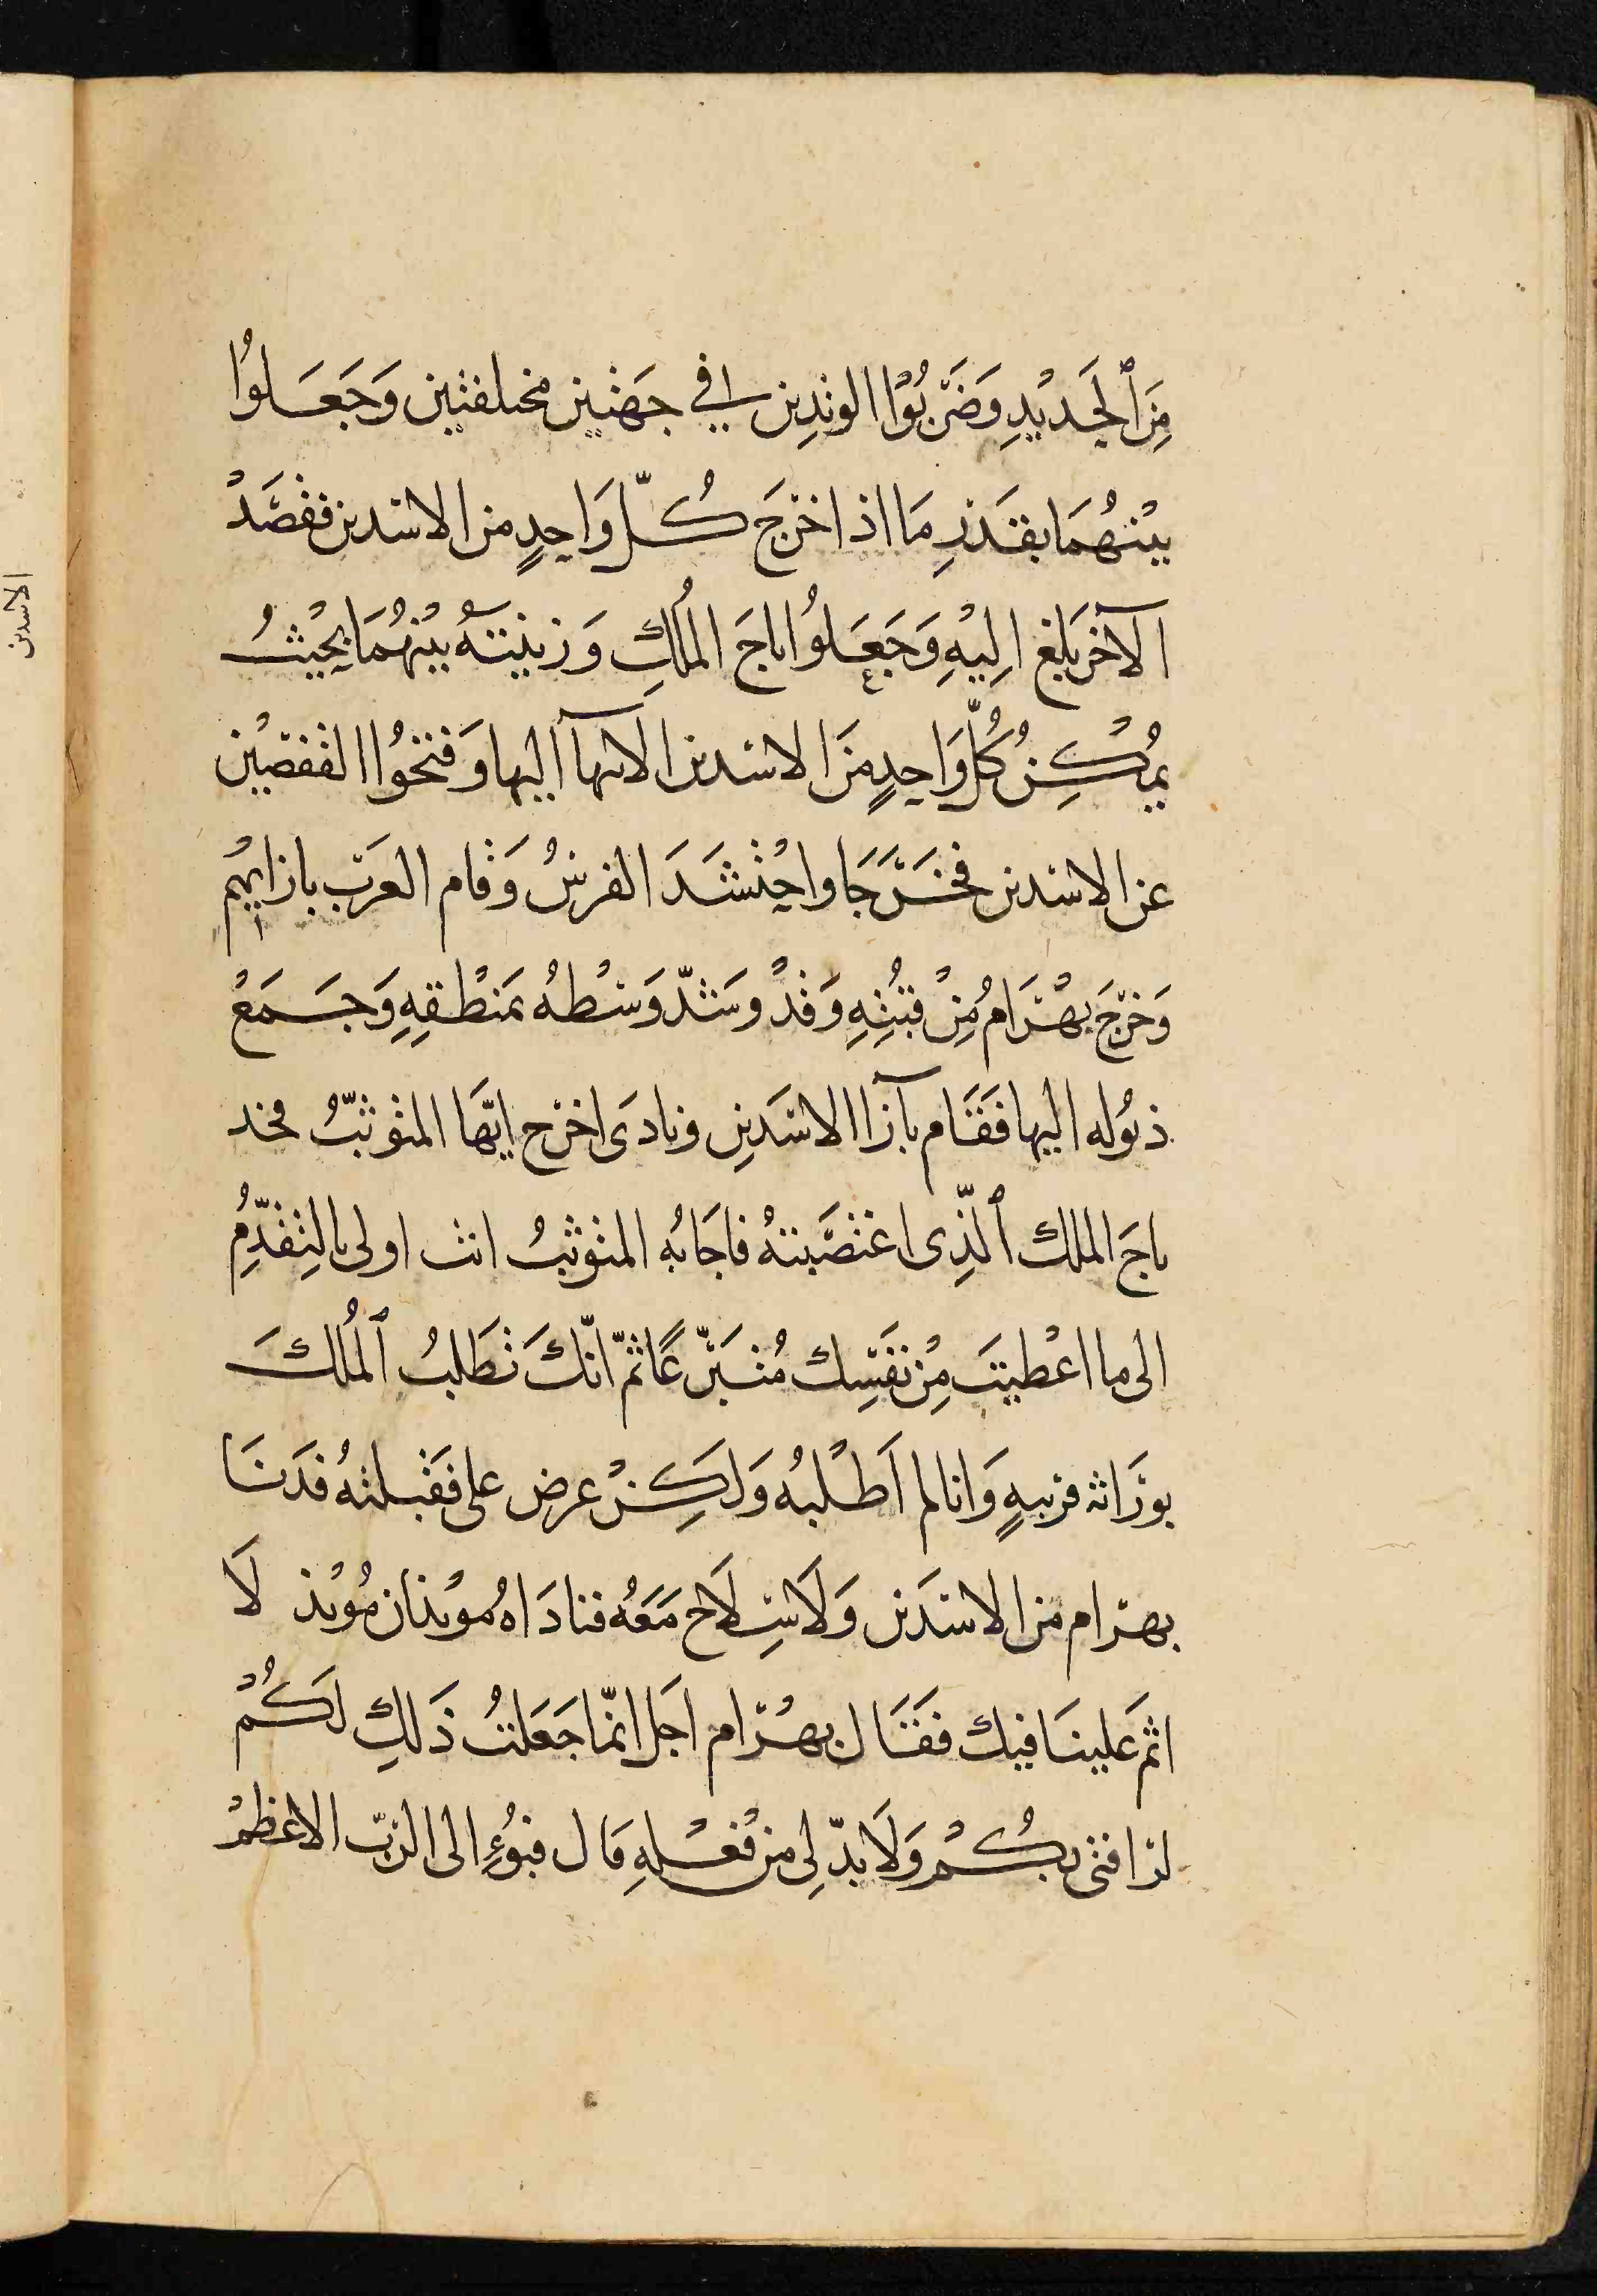 مِنَ ٱلحَديْدِ وَضَرَبُوْا الوتدِين في جهَتين مختلفتين وَجَعَلوُا
بيْنهُمَا بقَدَرِ مَا اذا خرَج كُلّ وَاحِدٍ من الاسَدين فقصَدْ
الآخر بَلغ اِليْهِ وَجَعَلوُا تاجَ المُلكِ وَزينتهُ بيْنهُمَا بحَيْثُ
يمُكِنُ كُلّ وَاحِدٍ مِنَ الاسَدين الانتهآ اليها وَفتحُوْا القفصَيْن
عن الاسَدين فخَرَجَا واحْتشَدَ الفرسُ وَقام العَرَب بازايهُم
وَخرَجَ بهْرَام مِنْ قبّتِهِ وَقدْ وشَدّ وَسْطهُ بمَنْطقِهِ وَجَمَعْ
ذيُوله اليها فَقَام بآزا الاسَدَيِن ونادَى اخرج ايّهَا المتوثبُّ فخد
تاجَ الملك ٱلَّذِى اغتصَبتهُ فاجَابهُ المتوثبُ انت اولى بالتِقدّمِ
الى ما اعْطيتَ مِنْ نفَسِك مُتبَرّعًا ثمّ انّكَ تَطَلبُ ٱلمُلكَ
بورَاثه قريبهٍ وَانا لم اَطْلبهُ وَلكِنْ عرض على فَقَبلتهُ فدَنَا
بهرَام من الاسَدَين وَلَا سِلَاح مَعَهُ فنادَاهُ موْبذان مُوْبذ لَا
اثمَ عَلينَا فيك فقَال بهْرَام اجَل انّما جَعَلتُ ذَلكِ لكُمْ
لرافتى بكُمْ وَلَا بدّ لِى من فعْلهِ قال فبُوءِ الى الربّ الاعَظمْ
الاسدين